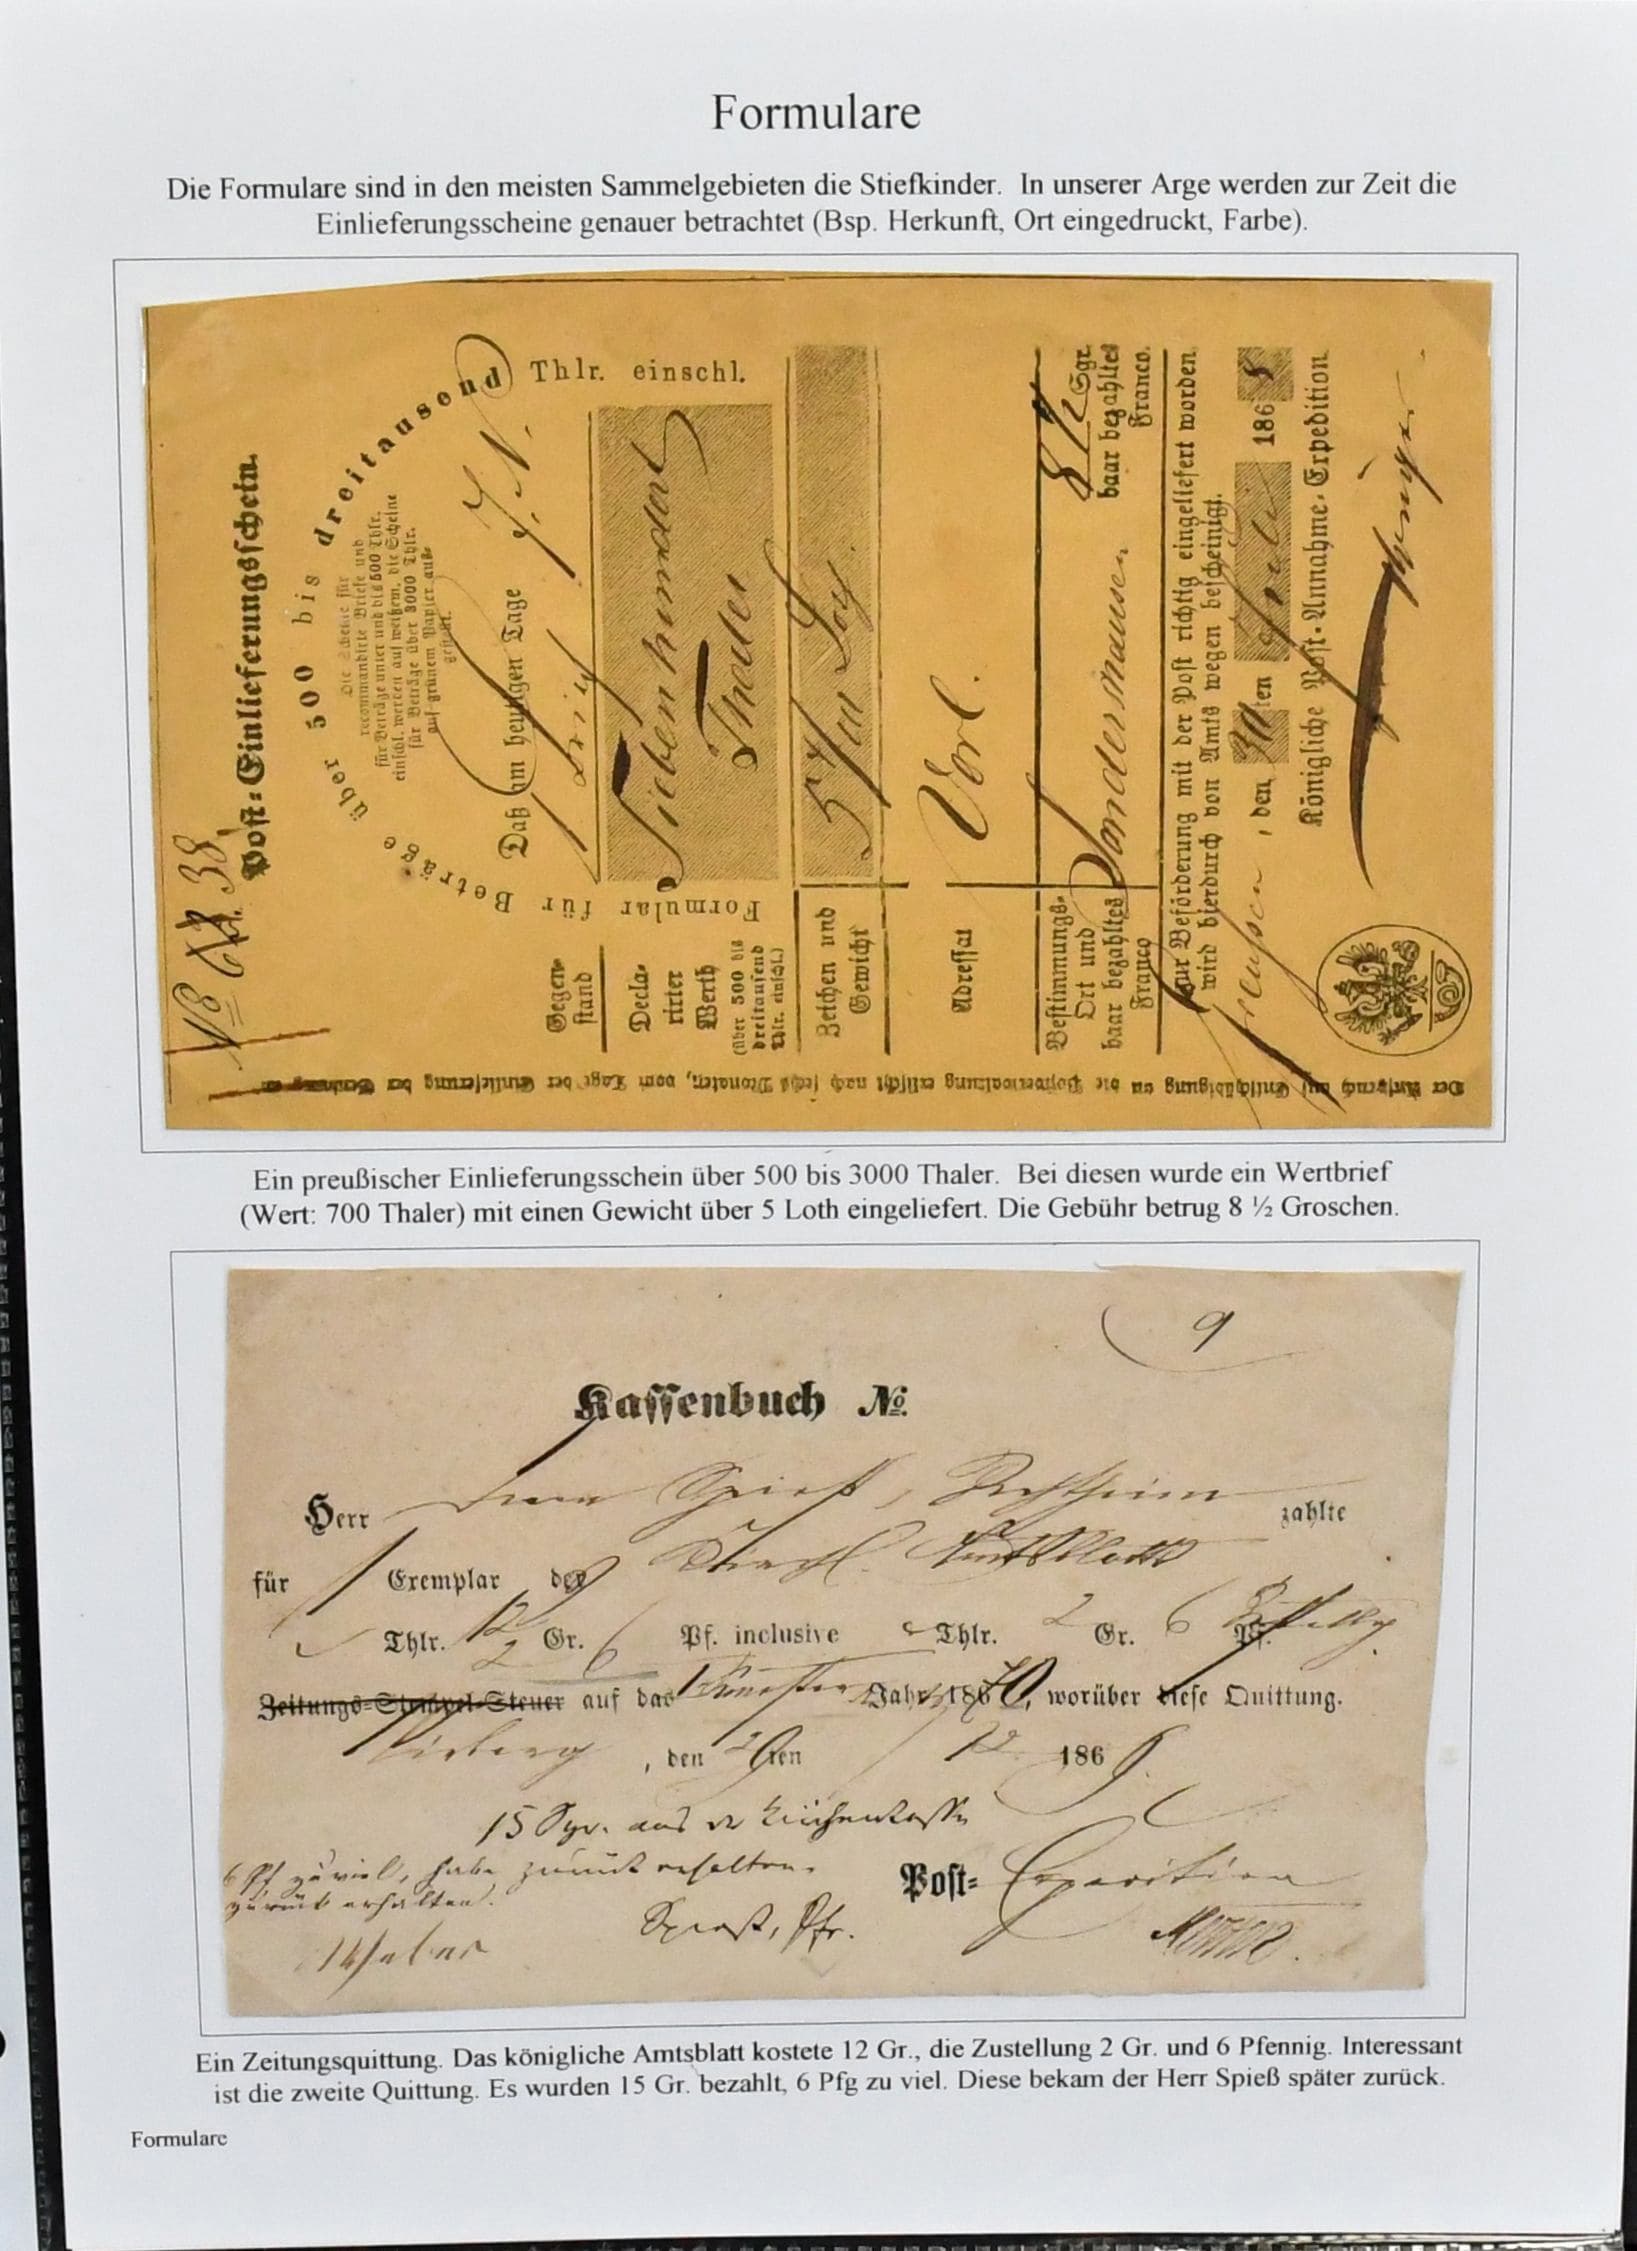 Formulare
Die Formulare sind in den meisten Sammelgebieten die Stiefkinder. In unserer Arge werden zur Zeit die
Einlieferungsscheine genauer betrachtet (Bsp. Herkunft, Ort eingedruckt, Farbe).
No 38
Post-Einlieferungsschein.
Formular für Beträge über 500 bis dreitausend Thlr. einschl.
Die Scheine für
recommandirte Briefe und
für Beträge unter und bis 500 Thlr.
einschl. werden auf weißem, die Scheine
für Beträge über 3000 Thlr.
auf grünem Papier aus-
gestellt.
Daß am heutigen Tage
Gegen-
stand
Brief
Decla-
rirter
Werth
(über 500 bis
dreitausend
Thlr. einschl.)
Siebenhundert
Thaler
Zeichen und
Gewicht
Adressat
Verl.
Bestimmungs-
Ort und
baar bezahltes
Franco
8½ Sgr.
baar bezahltes
Franco.
zur Beförderung mit der Post richtig eingeliefert worden
wird hierdurch von Amts wegen bescheinigt.
, den 30ten 1868
Königliche Post-Annahme-Expedition
Der Anspruch auf Entschädigung an die Postverwaltung erlischt nach sechs Monaten, vom Tage der Einlieferung der Sendung an
Ein preußischer Einlieferungsschein über 500 bis 3000 Thaler. Bei diesen wurde ein Wertbrief
(Wert: 700 Thaler) mit einen Gewicht über 5 Loth eingeliefert. Die Gebühr betrug 8 ½ Groschen.
9
Kassenbuch No.
Herr Spieß, zahlte
für 1 Exemplar des Königl. Amtsblatts
Thlr. 12 Gr. Pf. inclusive Thlr. 2 Gr. 6 Pf.
2 6
Zeitungs-Stempel-Steuer auf das Jahr 1870, worüber diese Quittung.
, den 29ten 12 1869.
15 Sgr. aus der Kirchenkasse
6 Pf zuviel, habe zurück erhalten.
zurück erhalten.
Spieß, Pfr.
Post-Expedition
Ein Zeitungsquittung. Das königliche Amtsblatt kostete 12 Gr., die Zustellung 2 Gr. und 6 Pfennig. Interessant
ist die zweite Quittung. Es wurden 15 Gr. bezahlt, 6 Pfg zu viel. Diese bekam der Herr Spieß später zurück.
Formulare